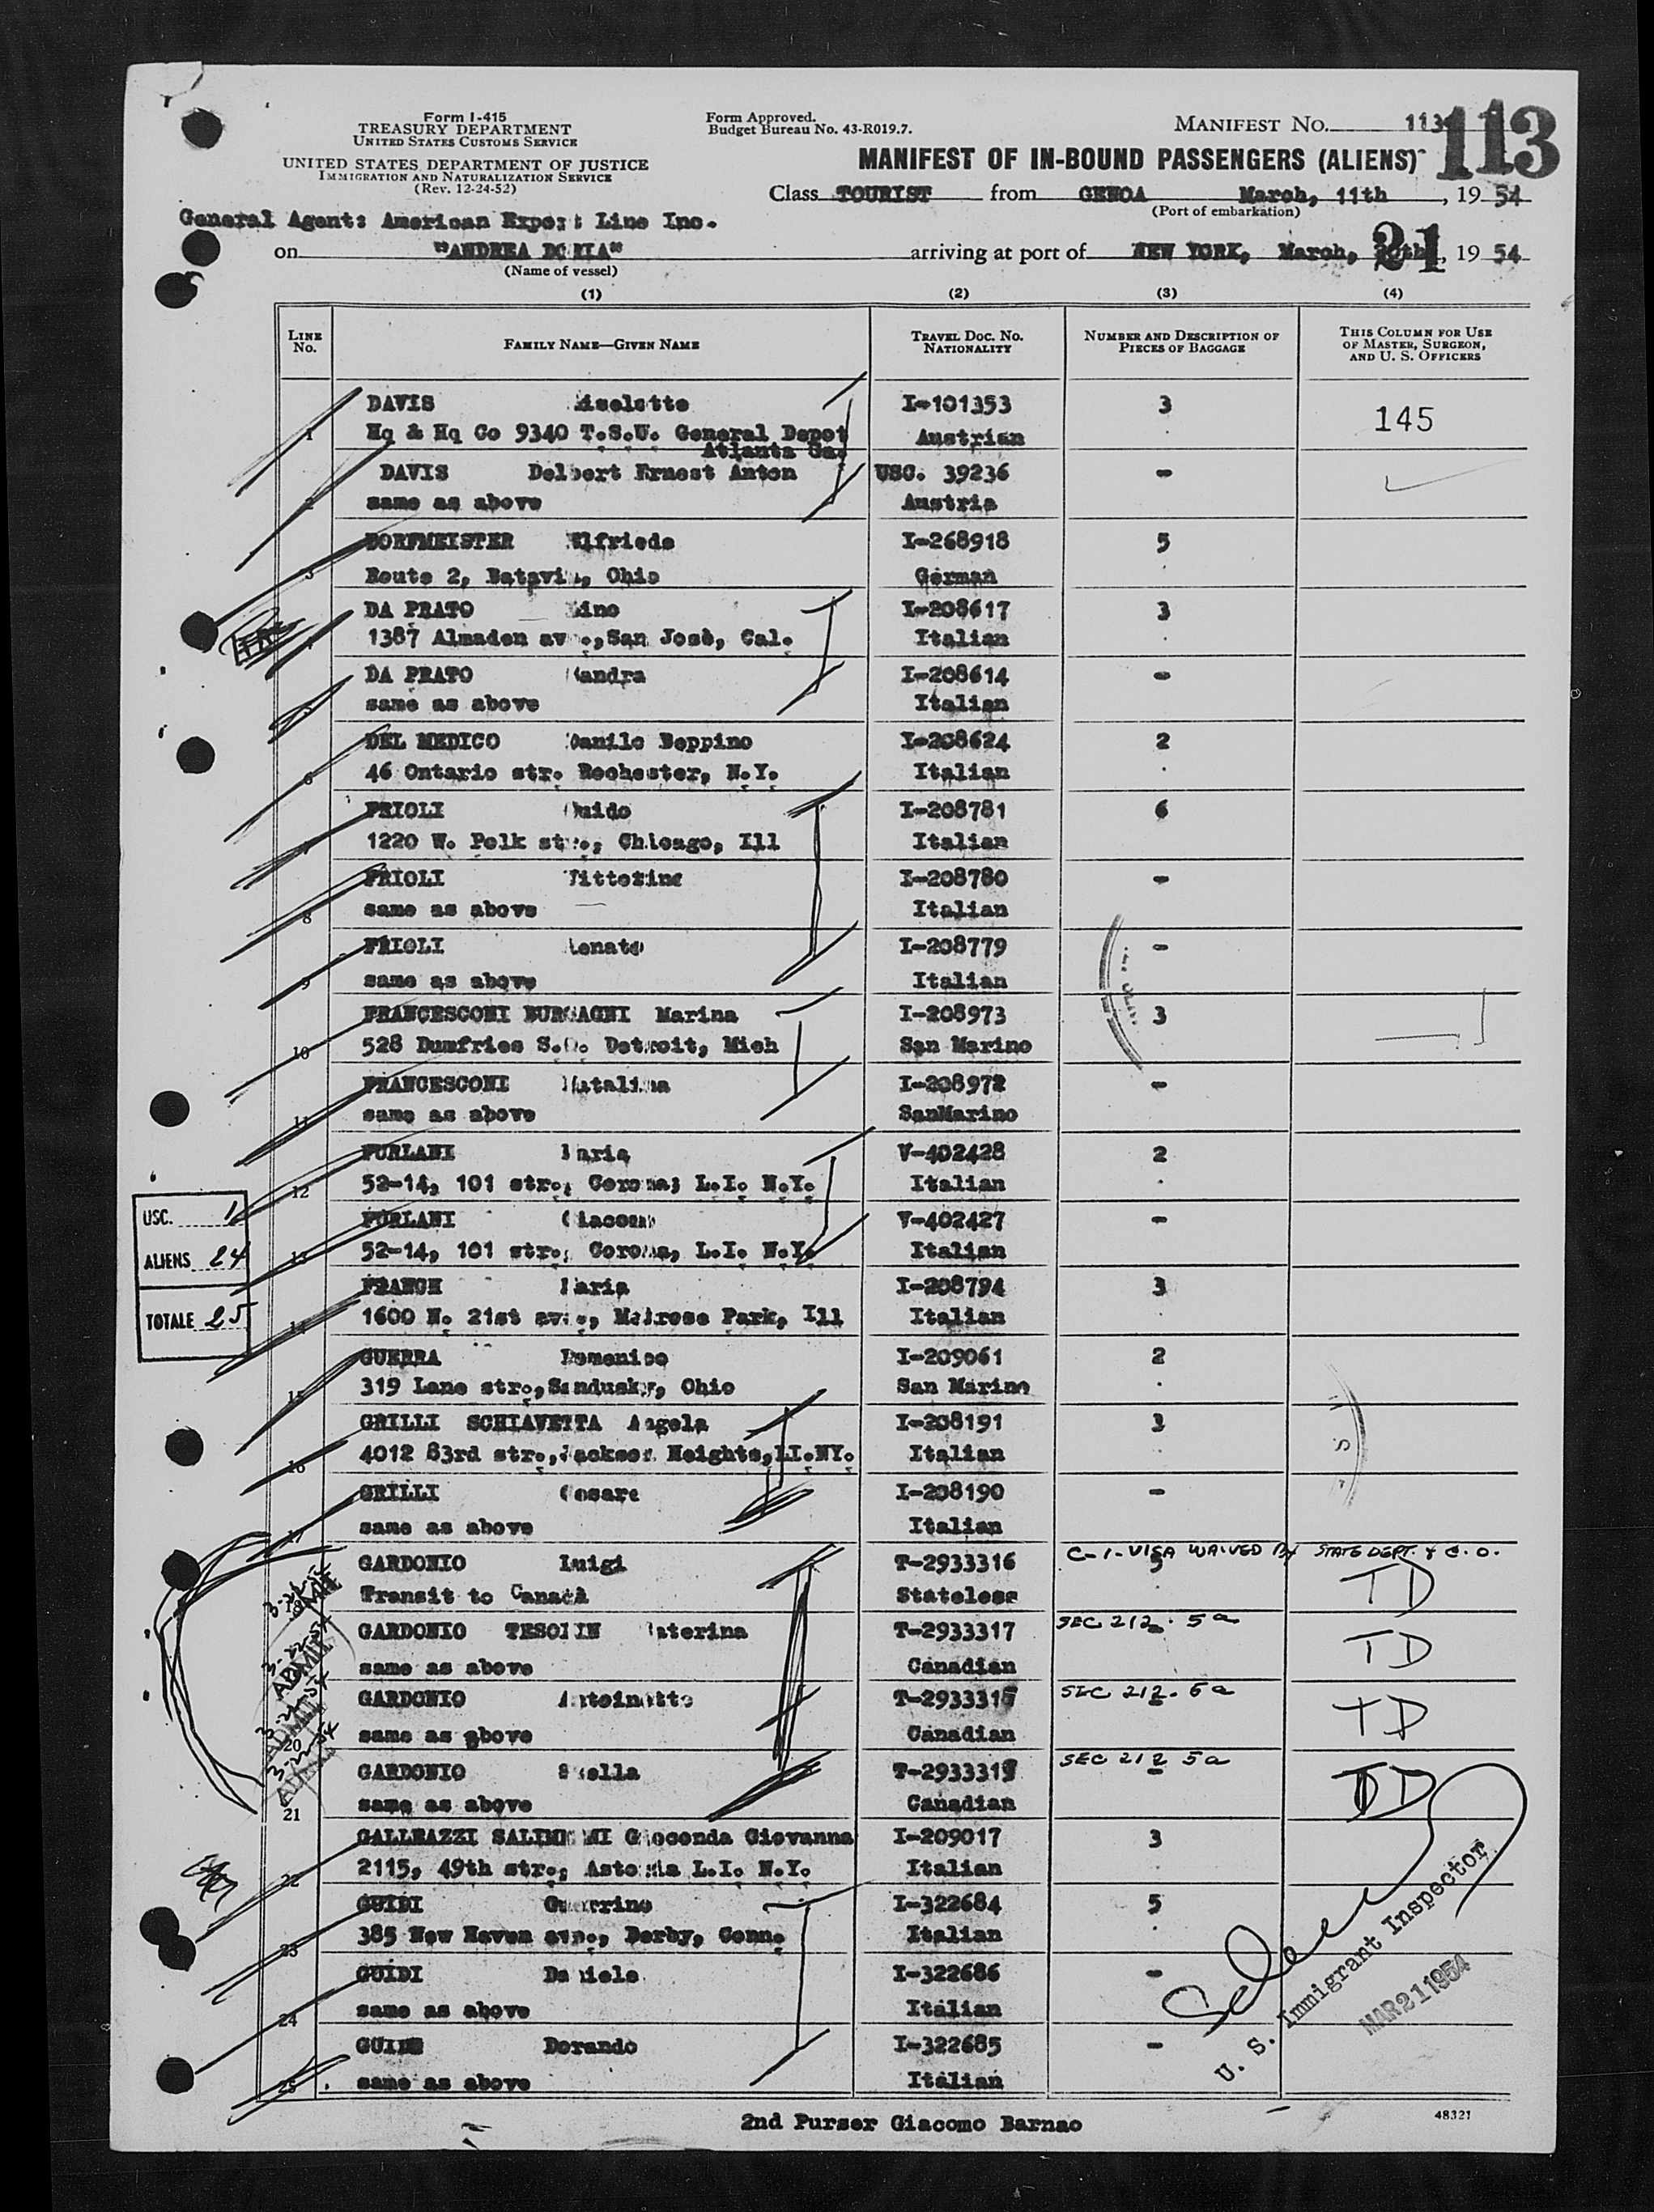 Form I-415
TREASURY DEPARTMENT
UNITED STATES CUSTOMS SERVICE
UNITED STATES DEPARTMENT OF JUSTICE
IMMIGRATION AND NATURALIZATION SERVICE
(Rev. 12-24-52)
Form Approved.
Budget Bureau No. 43-R019.7.
MANIFEST NO. 113
113
MANIFEST OF IN-BOUND PASSENGERS (ALIENS)
Class TOURIST from GENOA March, 11th, 19 54
(Port of embarkation)
General Agent: American Export Line Inc.
on "ANDREA DORIA" arriving at port of NEW YORK, March, 21, 19 54
(Name of vessel)
(1) (2) (3) (4)
LINE NO.
FAMILY NAME—GIVEN NAME
TRAVEL DOC. NO. NATIONALITY
NUMBER AND DESCRIPTION OF PIECES OF BAGGAGE
THIS COLUMN FOR USE OF MASTER, SURGEON, AND U. S. OFFICERS
DAVIS Liselotte I-101353 3 145
1 Hq & Hq Co 9340 T.S.U. General Depot Austrian
Atlanta Ga.
DAVIS Delbert Ernest Anton USC. 39236 -
2 same as above Austria
DORFMEISTER Elfriede I-268918 5
3 Route 2, Batavia, Ohio German
DA PRATO Lino I-208617 3
4 1387 Almaden ave., San Josè, Cal. Italian
DA PRATO Sandra I-208614 -
5 same as above Italian
DEL MEDICO Danilo Beppino I-208624 2
6 46 Ontario str. Rochester, N.Y. Italian
FRIOLI Guido I-208781 6
7 1220 W. Polk str., Chicago, Ill Italian
FRIOLI Vittorina I-208780 -
8 same as above Italian
FRIOLI Renato I-208779 -
9 same as above Italian
FRANCESCONI BURGAGNI Marina I-208973 3
10 528 Dumfries S.O. Detroit, Mich San Marino
FRANCESCONI Natalina I-208972 -
11 same as above SanMarino
FURLANI Maria V-402428 2
12 52-14, 101 str., Corona, L.I. N.Y. Italian
FURLANI Giacomo V-402427 -
13 52-14, 101 str., Corona, L.I. N.Y. Italian
FRANCH Maria I-208794 3
14 1600 N. 21st ave., Melrose Park, Ill Italian
GUERRA Domenico I-209061 2
15 319 Lane str., Sandusky, Ohio San Marino
GRILLI SCHIAVETTA Angela I-208191 3
16 4012 83rd str., Jackson Heights, LI.NY. Italian
GRILLI Cesare I-208190 -
17 same as above Italian
GARDONIO Luigi T-2933316 5 C-1-VISA WAIVED BY STATE DEPT. & C.O.
Transit to Canadà Stateless TD
GARDONIO TESOLIN Caterina T-2933317 SEC 212. 5a
same as above Canadian TD
GARDONIO Antoinette T-2933318 SEC 212. 5a
20 same as above Canadian TD
GARDONIO Stella T-2933319 SEC 212 5a
21 same as above Canadian TD
GALLEAZZI Gioconda Giovanna I-209017 3
22 2115, 49th str., Astoria L.I. N.Y. Italian
GUIDI Guerrino I-322684 5
23 385 New Haven ave., Derby, Conn. Italian
GUIDI Daniele I-322686 -
24 same as above Italian
GUIDI Dorando I-322685 -
25 same as above Italian
USC. 1
ALIENS 24
TOTALE 25
3-22-54
ADMIT
U. S. Immigrant Inspector
MAR 21 1954
2nd Purser Giacomo Barnao
48321